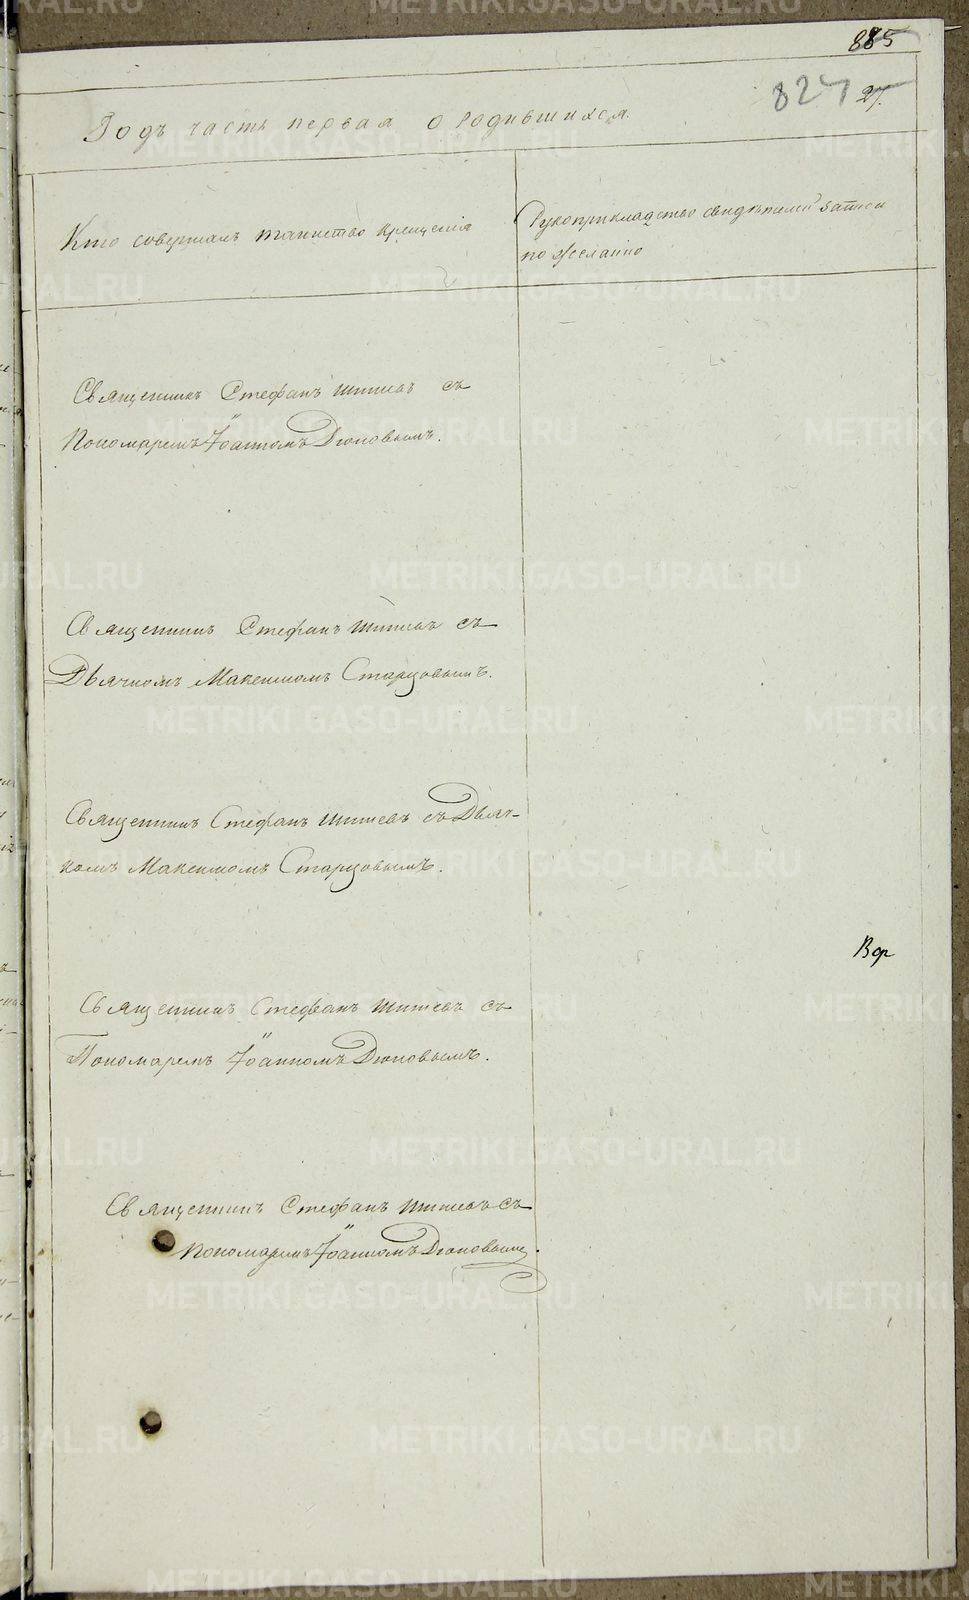 885
824 27.
Годъ часть первая о родившихся.
Кто совершалъ таинство крещенія
Рукоприкладство свидѣтелей записи
по желанію
Священникъ Стефанъ Шишевъ съ
Пономаремъ Іоанномъ Дюповымъ.
Священникъ Стефанъ Шишевъ съ
Дьячкомъ Максимомъ Старцовымъ.
Священникъ Стефанъ Шишевъ съ Дьяч-
комъ Максимомъ Старцовымъ.
Священникъ Стефанъ Шишевъ съ
Пономаремъ Іоанномъ Дюповымъ.
Священникъ Стефанъ Шишевъ съ
Пономаремъ Іоанномъ Дюповымъ.
METRIKI.GASO-URAL.RU